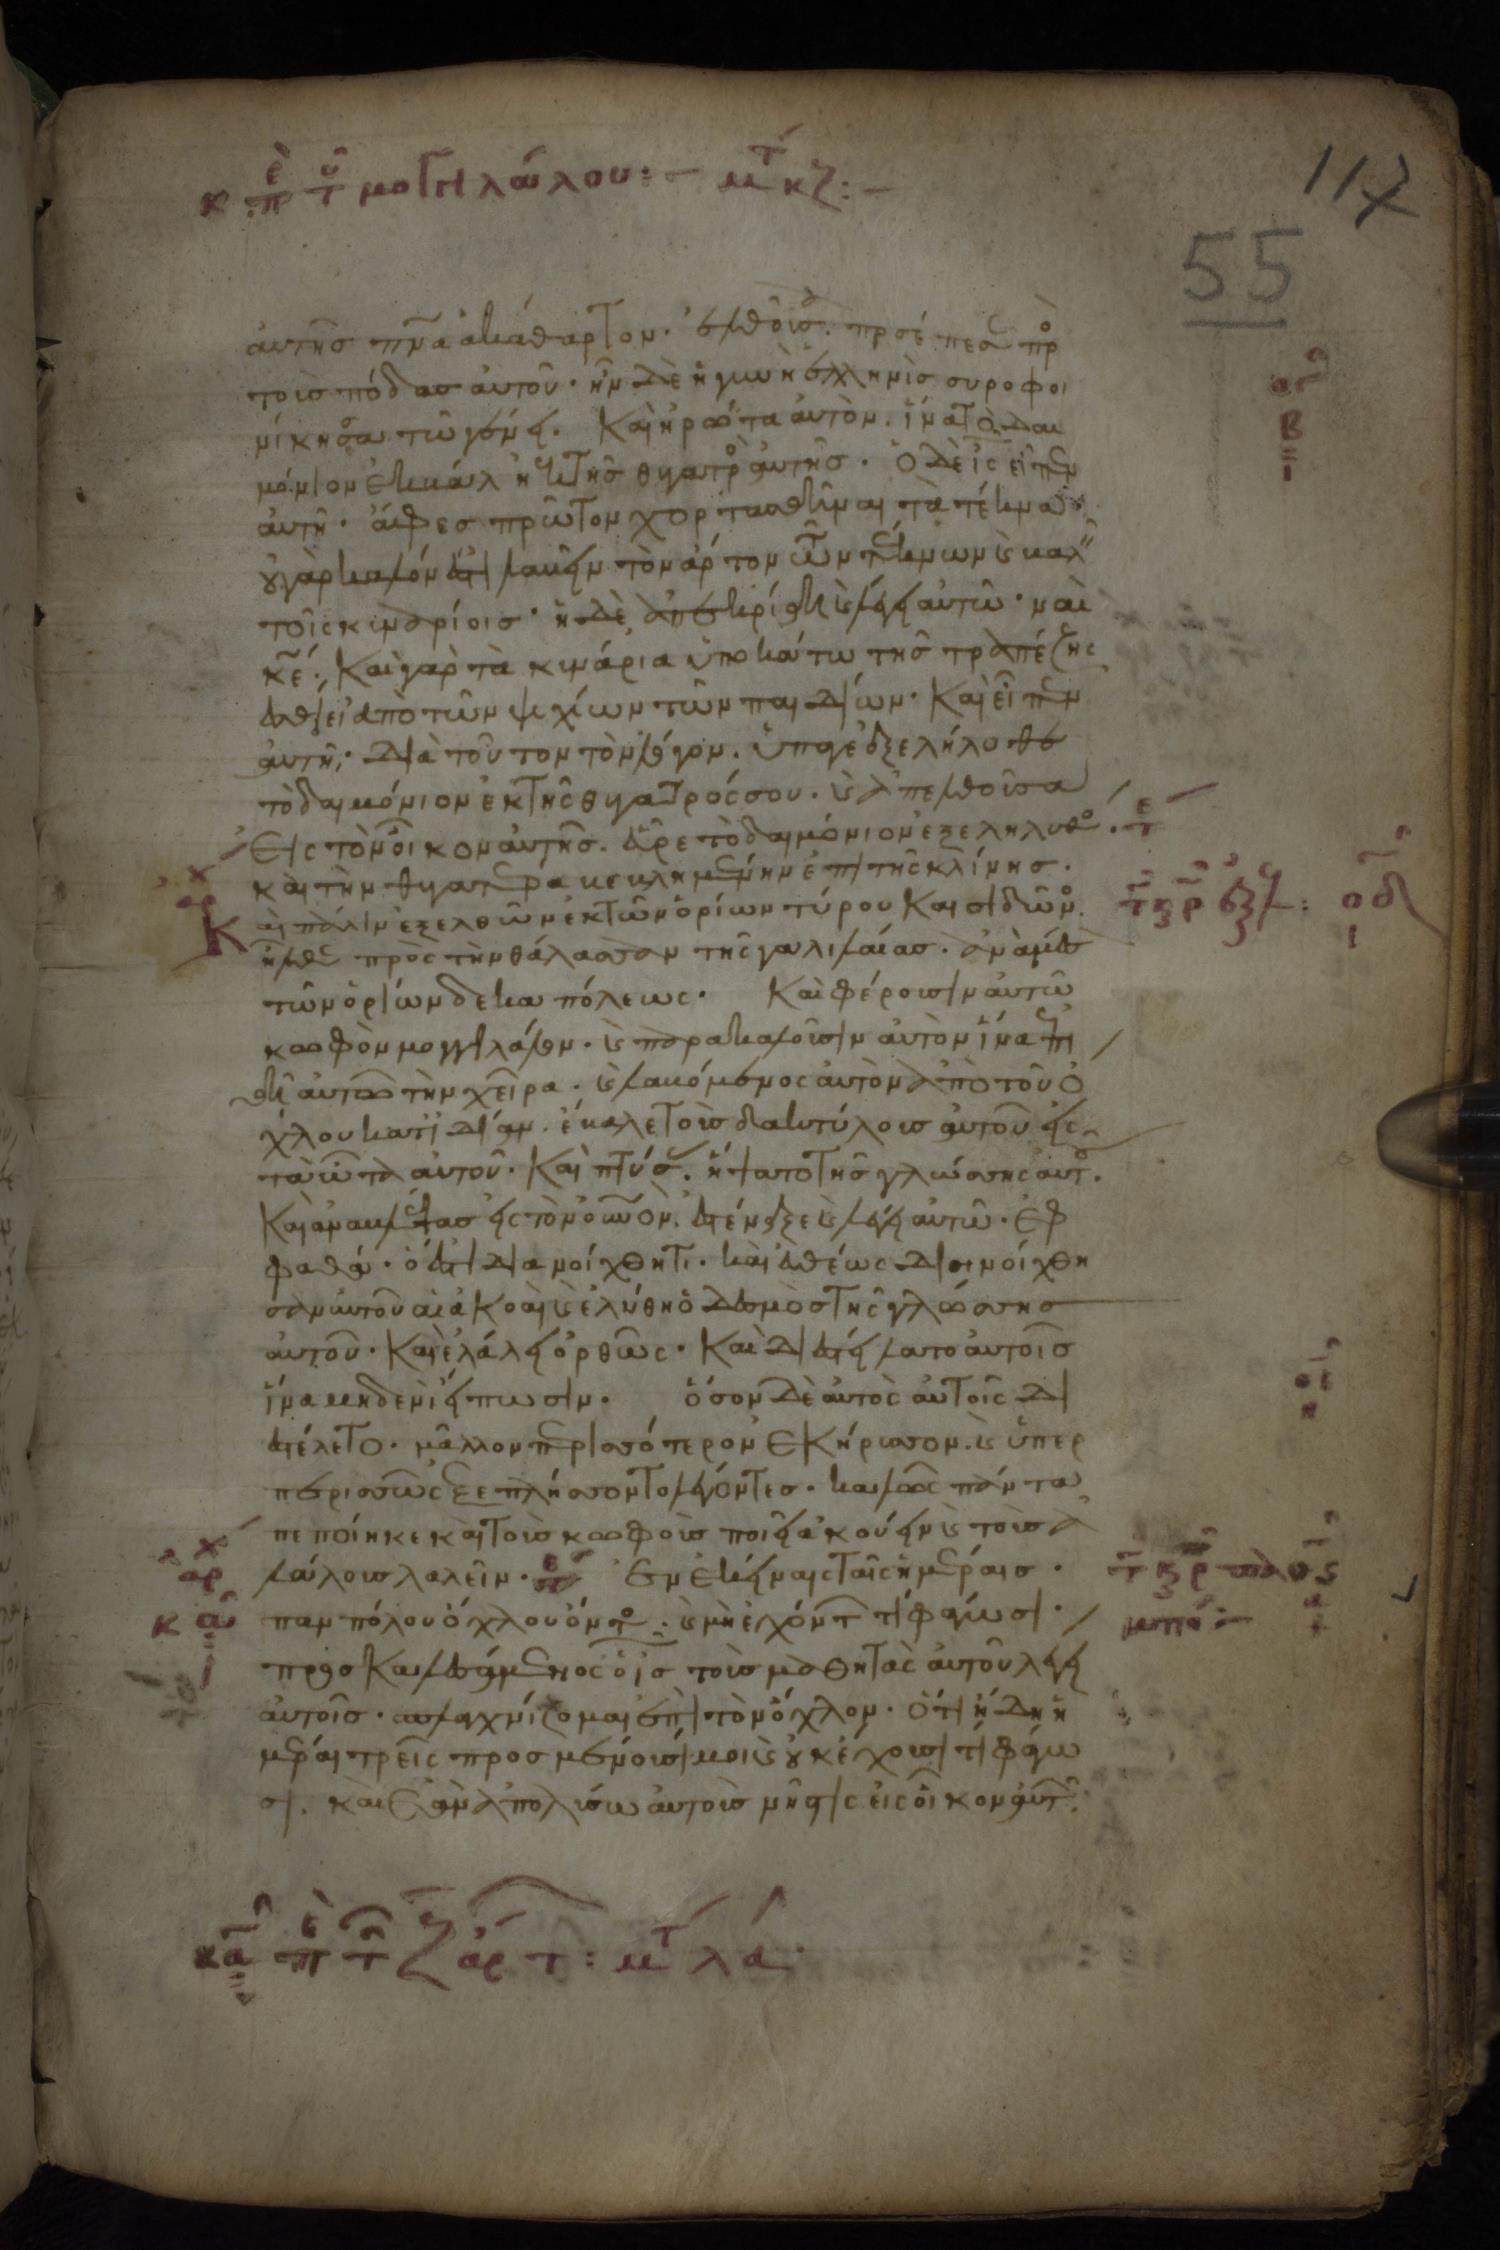 κ περὶ τοῦ μογγιλάλου:– μτ κζ:–
117
55
αὐτῆς πνα ἀκάθαρτον. ἐλθοῦσα προσέπεσε πρὸ
τοὺς πόδας αὐτοῦ. ἦν δὲ ἡ γυνὴ ἑλληνὶς συροφοι
νίκησσα τῷ γένει. Καὶ ἠρώτα αὐτὸν. ἵνα τὸ δαι
μόνιον ἐκβάλη ἐκ τῆς θυγατρὸς αὐτῆς. Ὁ δὲ ις εἶπεν
αὐτῆ. ἄφες πρῶτον χορτασθῆναι τὰ τέκνα.
οὐ γὰρ καλόν ἐστι λαβεῖν τὸν ἄρτον τῶν τέκνων καὶ βαλεῖν
τοῖς κυναρίοις. ἡ δὲ ἀπεκρίθη καὶ λέγει αὐτῶ. ναὶ
κε. Καὶ γὰρ τὰ κυνάρια ὑποκάτω τῆς τραπέζης
ἐσθίει ἀπὸ τῶν ψιχίων τῶν παιδίων. Καὶ εἶπεν
αὐτῆ. Διὰ τοῦτον τὸν λόγον. ὕπαγε ἐξελήλυθε
τὸ δαιμόνιον ἐκ τῆς θυγατρός σου. καὶ ἀπελθοῦσα
εἰς τὸν οἶκον αὐτῆς. εὗρε τὸ δαιμόνιον ἐξεληλυθὸς. τε
καὶ τὴν θυγατέρα βεβλημένην ἐπὶ τῆς κλίνης.
Καὶ πάλιν ἐξελθὼν ἐκ τῶν ὁρίων τύρου Καὶ σιδῶνος
ἦλθε πρὸς τὴν θάλασσαν τῆς γαλιλαίας. ἀνὰ μέσον
τῶν ὁρίων δεκαπόλεως. Καὶ φέρουσιν αὐτῶ
κωφὸν μογγιλάλον. καὶ παρακαλοῦσιν αὐτὸν ἵνα ἐπι
θῆ αὐτῶ τὴν χεῖρα. καὶ λαβόμενος αὐτὸν ἀπὸ τοῦ ὄ
χλου κατϊδίαν. ἔβαλε τοὺς δακτύλους αὐτοῦ εἰς
τὰ ὦτα αὐτοῦ. Καὶ πτύσας. ἥψατο τῆς γλώσσης αὐτοῦ.
Καὶ ἀναβλέψας εἰς τὸν οὐνὸν. ἐστέναξε καὶ λέγει αὐτῶ. ἐφ
φαθά. ὅ ἐστι διανοίχθητι. καὶ εὐθέως διηνοίχθη
σαν αὐτοῦ αἱ ἀκοαὶ καὶ ἐλύθη ὁ δεσμὸς τῆς γλώσσης
αὐτοῦ. Καὶ ἐλάλει ὀρθῶς. Καὶ διεστείλατο αὐτοῖς
ἵνα μηδενὶ εἴπωσιν. ὅσον δὲ αὐτὸς αὐτοῖς δι
εστέλετο. μᾶλλον περισσότερον ἐκήρυσσον. καὶ ὑπερ
περισσῶς ἐξεπλήσσοντο λέγοντες. καλῶς πάντα
πεποίηκε καὶ τοὺς κωφοὺς ποιεῖ ἀκούειν καὶ τοὺς ἀ
λάλους λαλεῖν. τε Ἐν ἐκείναις ταῖς ἡμέραις.
παμπόλου ὄχλου ὄντος. καὶ μὴ ἐχόντων τί φάγωσι.
προσκαλεσάμενος ὁ ις τοὺς μαθητὰς αὐτοῦ λέγει
αὐτοῖς. σπλαγχνίζομαι ἐπὶ τὸν ὄχλον. ὅτι ἤδη ἡ
μέραι τρεῖς προσμένουσί μοι καὶ οὐκ έχουσι τί φάγω
σι. καὶ ἐὰν ἀπολύσω αὐτοὺς νήστις εἰς οἶκον αὐτῶν.
κα περὶ τῶν ζ ἄρτ: μτ λα